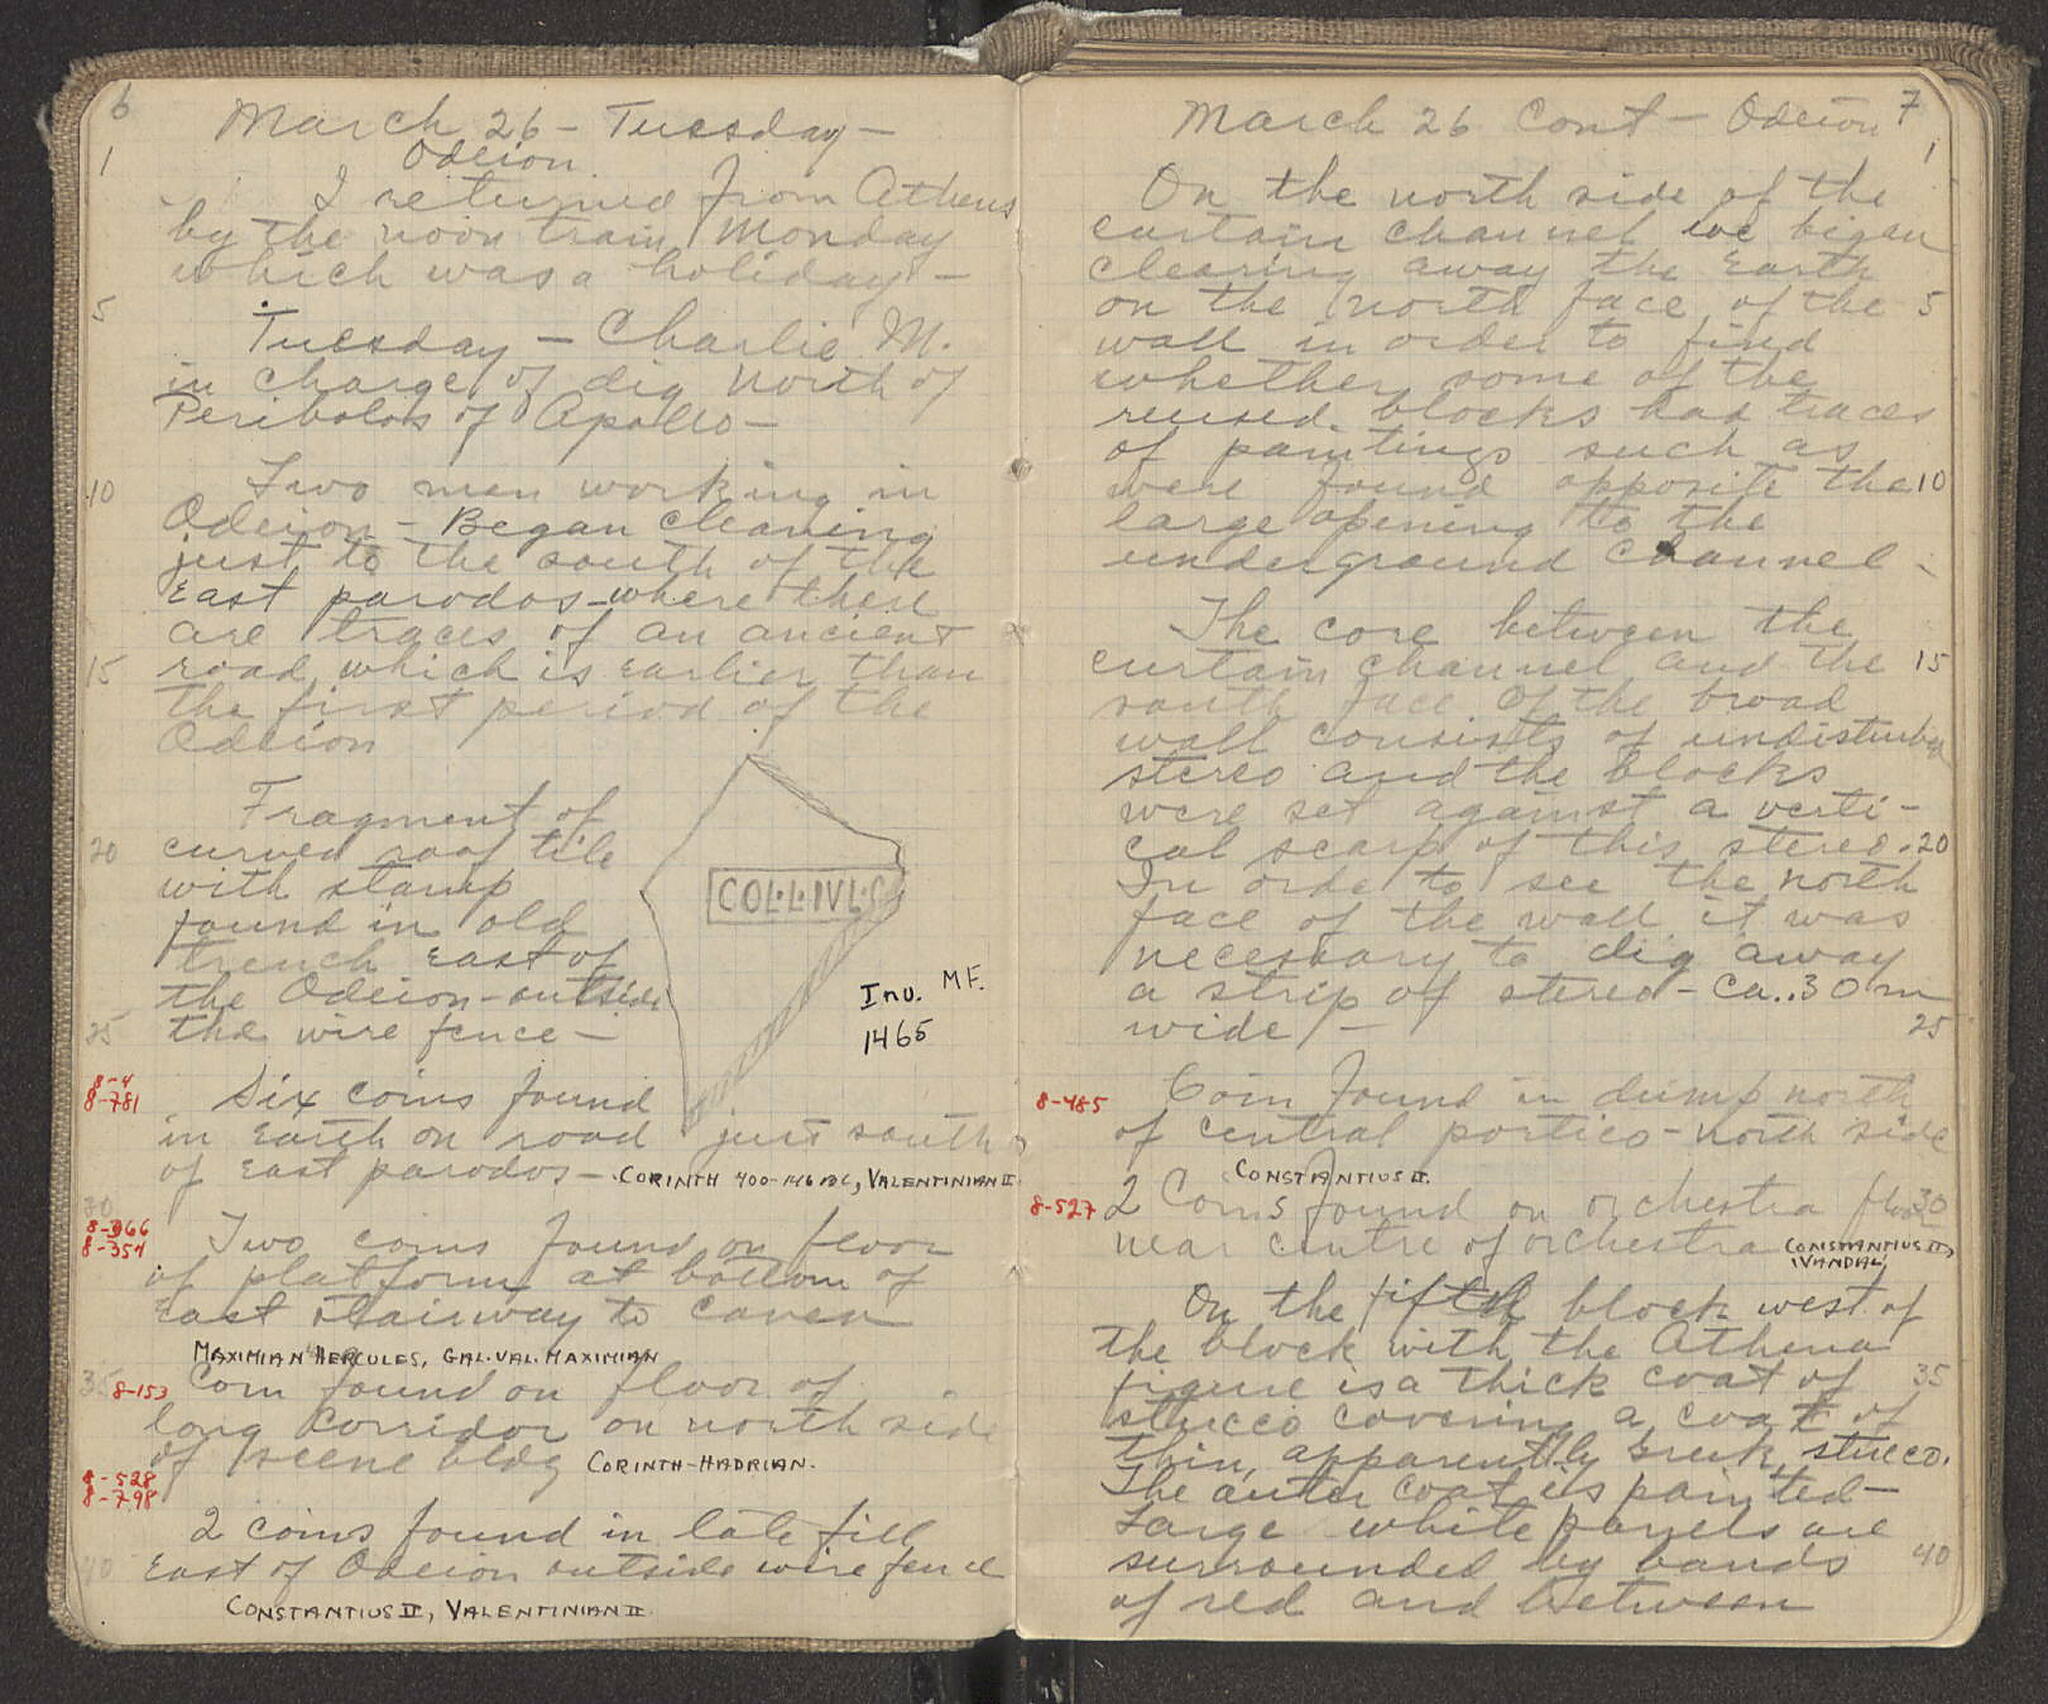 6
March 26 - Tuesday -
Odeion
1
I returned from Athens
by the noon train Monday
which was a holiday -
5
Tuesday - Charlie M.
in charge of dig north of
Peribolos of Apollo -
10
Two men working in
Odeion - Began cleaning
just to the south of the
East parodos - where there
are traces of an ancient
15
road which is earlier than
the first period of the
Odeion
Fragment of
20
curved roof tile
with stamp
found in old
trench east of
the Odeion - outside
25
the wire fence -
COL·L·IVL·C
Inv. MF.
1465
8-4
8-781
Six coins found
in earth on road just south
of East parodos - CORINTH 400-146 BC, VALENTINIAN II.
30
8-366
8-354
Two coins found on floor
of platform at bottom of
East stairway to cavea
MAXIMIAN HERCULES, GAL. VAL. MAXIMIAN
35
8-153
Coin found on floor of
long corridor on north side
of scene bldg CORINTH-HADRIAN.
8-528
8-798
2 coins found in late fill
40
East of Odeion outside wire fence
CONSTANTIUS II, VALENTINIAN II.
March 26 Cont - Odeion 7
1
On the north side of the
curtain channel we began
clearing away the earth
on the north face of the 5
wall in order to find
whether some of the
reused blocks had traces
of paintings such as
were found opposite the 10
large opening to the
underground channel -
The core between the
curtain channel and the 15
south face of the broad
wall consists of undisturbed
stereo and the blocks
were set against a verti-
cal scarp of this stereo. 20
In order to see the north
face of the wall it was
necessary to dig away
a strip of stereo - ca. .30 m
wide - 25
8-485
Coin found in dump north
of central portico - north side
CONSTANTIUS II.
8-527
2 Coins found on orchestra floor 30
near centre of orchestra CONSTANTIUS II,
VANDAL
On the fifth block west of
the block with the Athena
figure is a thick coat of 35
stucco covering a coat of
thin, apparently Greek, stucco.
The outer coat is painted -
Large white panels are
surrounded by bands 40
of red and between